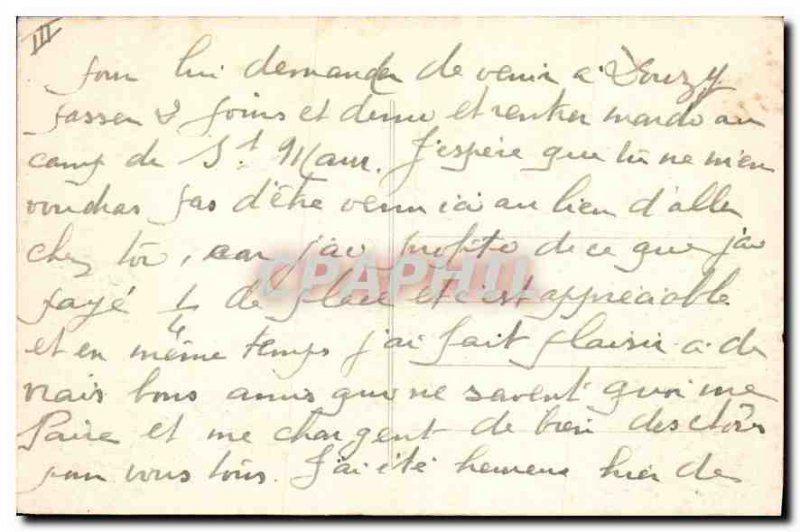 III
pour lui demander de venir à Douzy
passer 2 jours et demi et rentrer mardi au
camp de St Maur. J'espère que tu ne m'en
voudras pas d'être venu ici au lieu d'aller
chez toi, car j'ai profité de ce que j'ai
payé 1/4 de place et c'est appréciable
et en même temps j'ai fait plaisir à de
vrais bons amis qui ne savent quoi me
faire et me chargent de bien des choses
pour vous tous. J'ai été heureux hier de
CPAPHIL